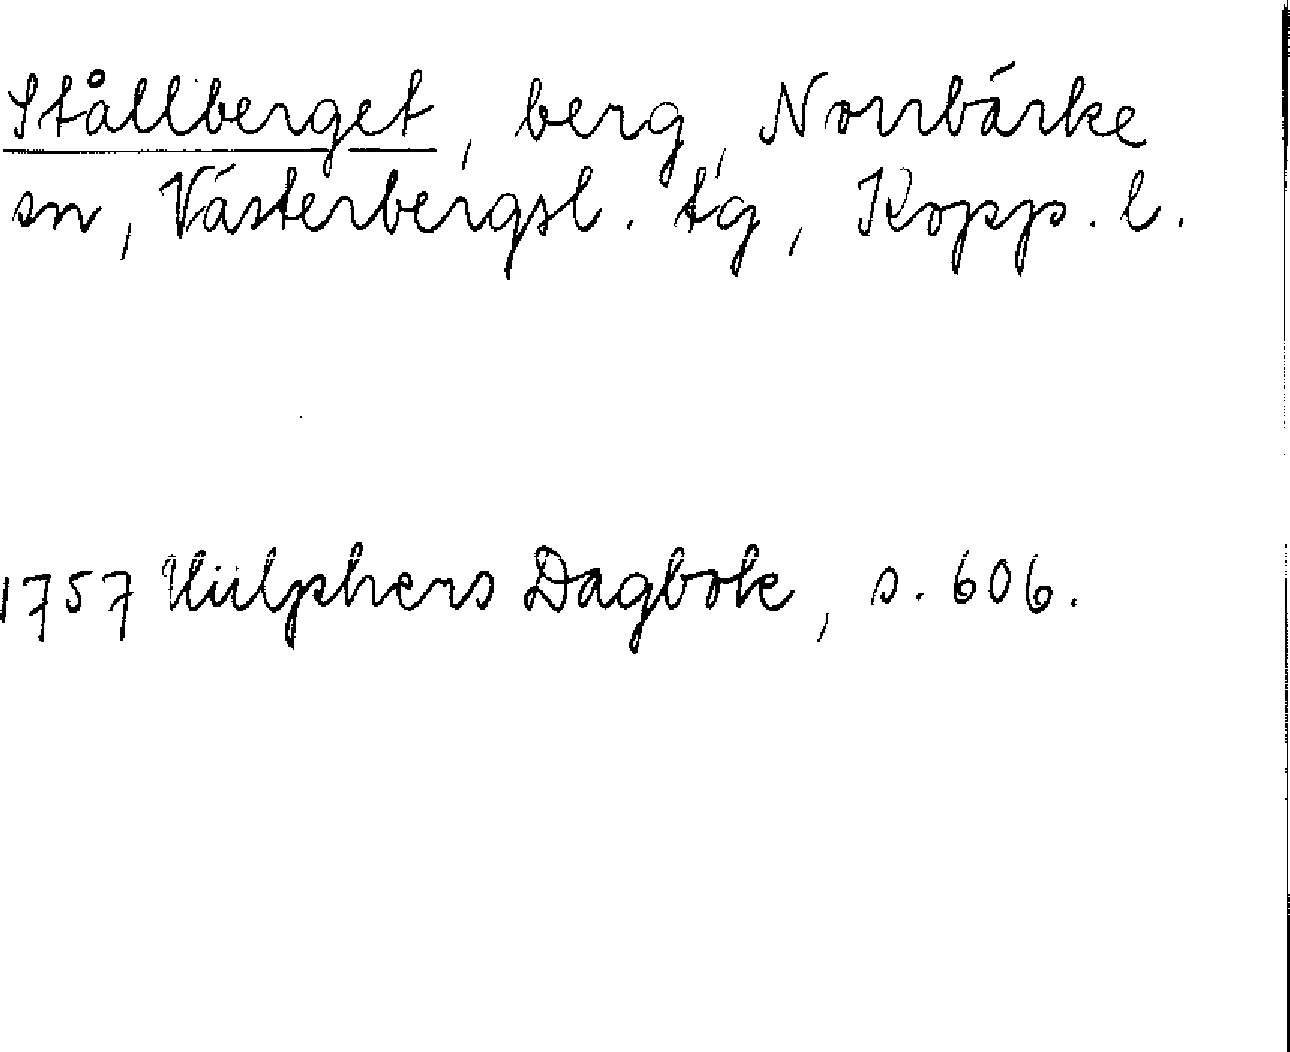 Stållberget, berg, Norrbärke
sn, Västerbergsl. tg, Kopp. l.
1757 Hülphers Dagbok, s. 606.